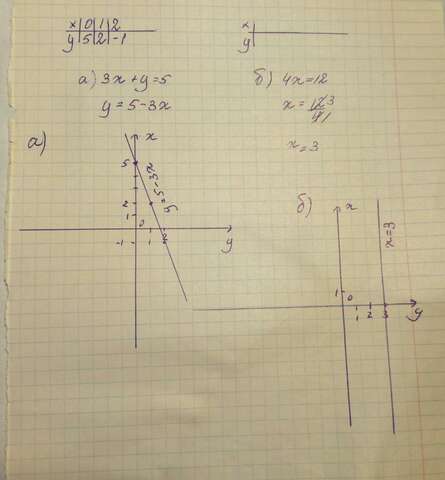 x | 0 | 1 | 2
y | 5 | 2 | -1
x
y
а) 3x + y = 5
y = 5 - 3x
б) 4x = 12
x = 12 3 / 4 1
x = 3
а)
x
5
y = 5 - 3x
2
1
0
-1
1
2
y
б)
x
x = 3
1
0
1 2 3
y